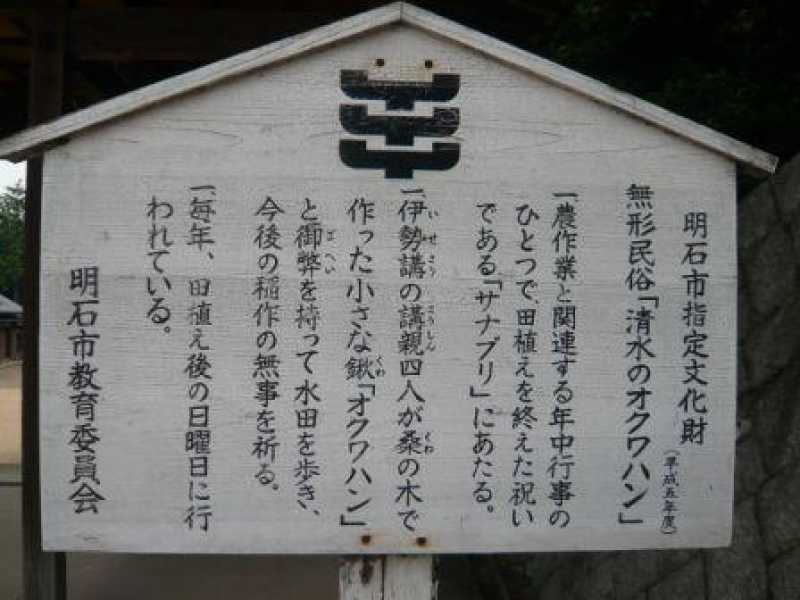 明石市指定文化財
(平成五年度)
無形民俗「清水のオクワハン」
一、農作業と関連する年中行事の
ひとつで、田植えを終えた祝い
である「サナブリ」にあたる。
一、伊勢講の講親四人が桑の木で
作った小さな鍬「オクワハン」
と御弊を持って水田を歩き、
今後の稲作の無事を祈る。
一、毎年、田植え後の日曜日に行
われている。
明石市教育委員会